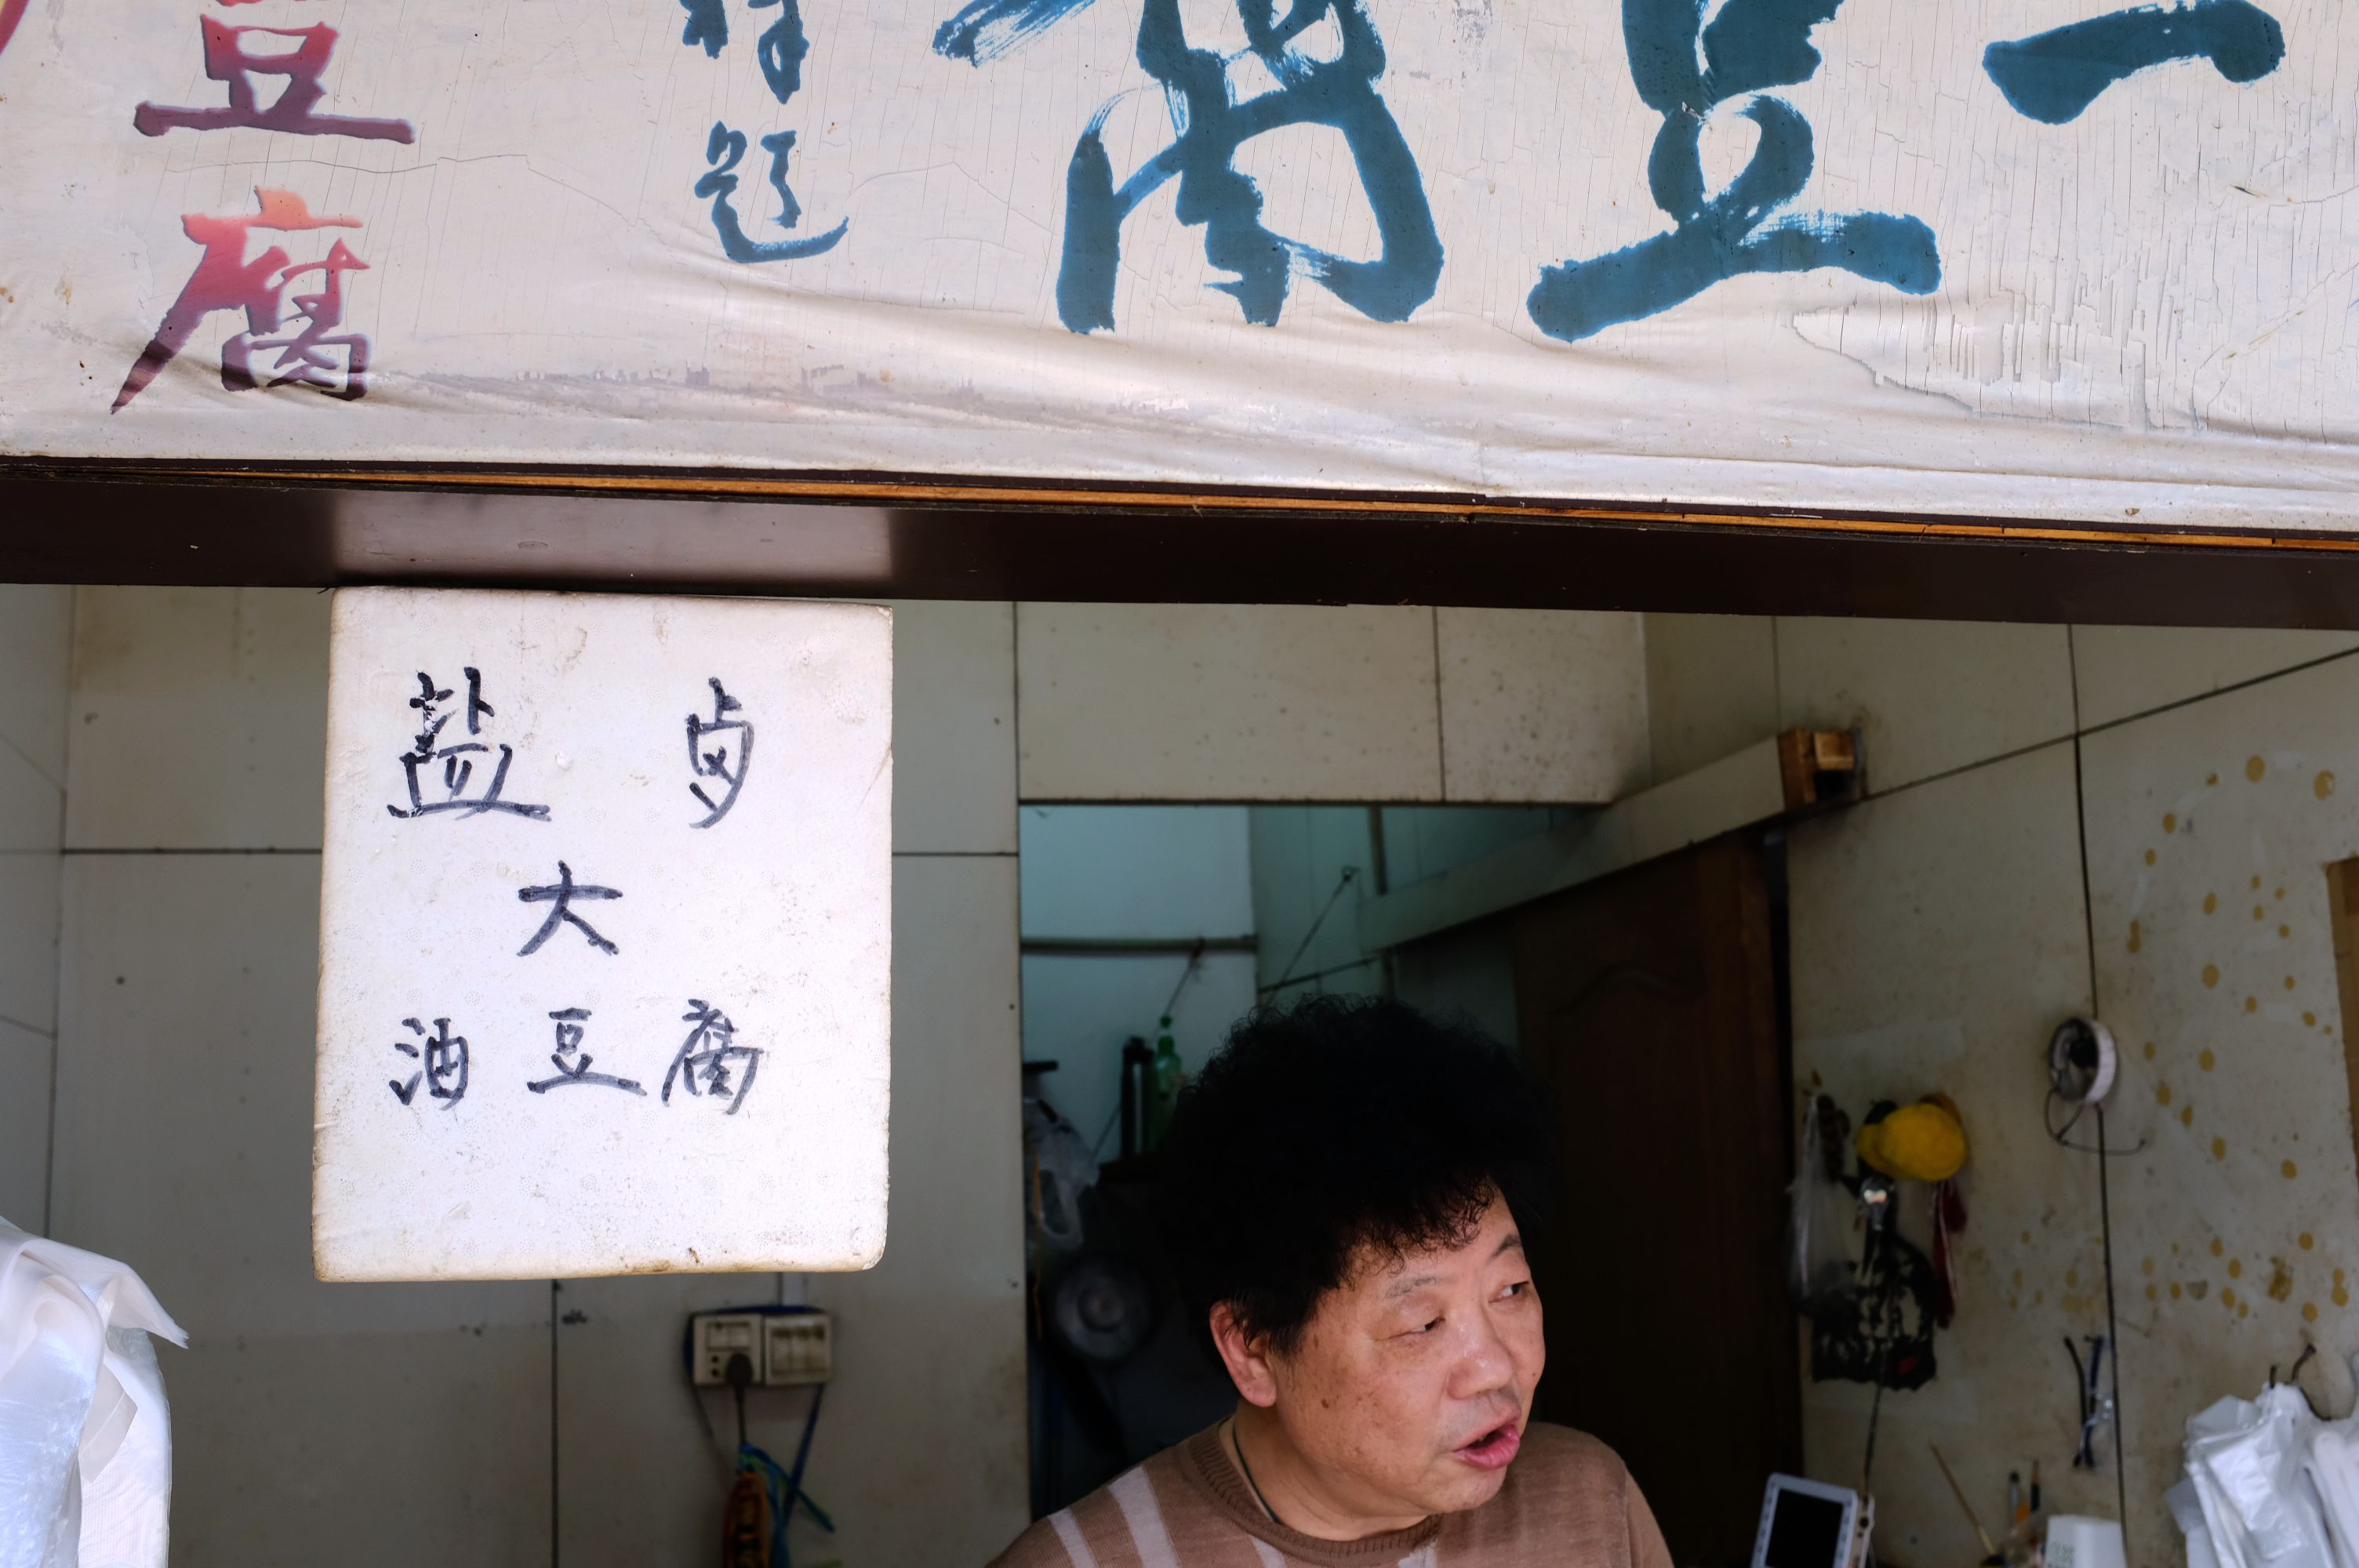 一豆腐
题
豆腐
盐 卤
大
油豆腐